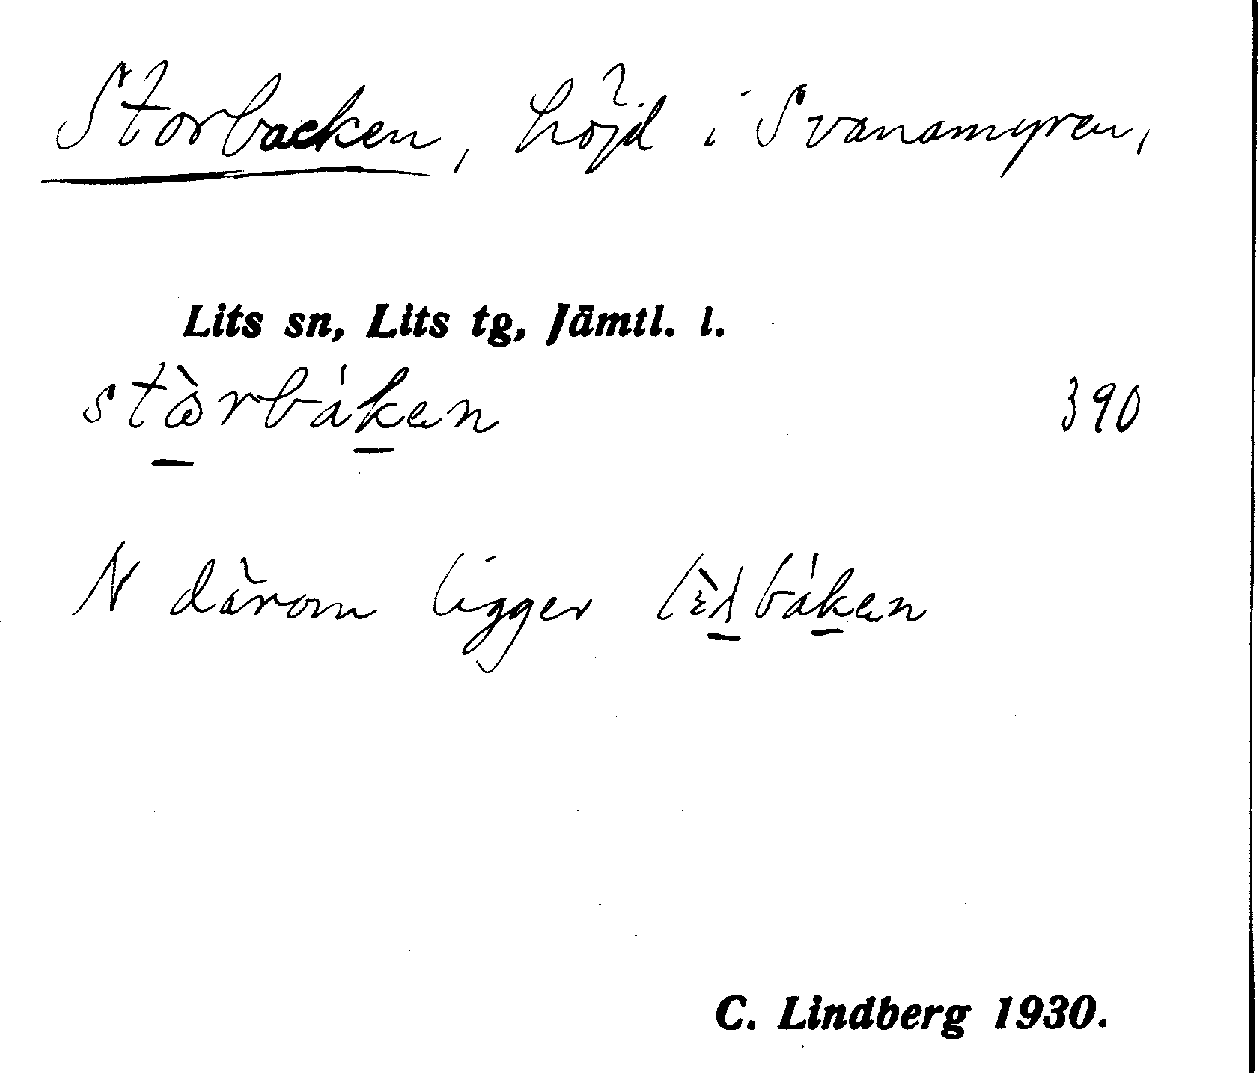 Storbacken, höjd i Svanamyren,
Lits sn, Lits tg, Jämtl. l.
stɷ̀rbáken 390
N därom ligger báken
C. Lindberg 1930.